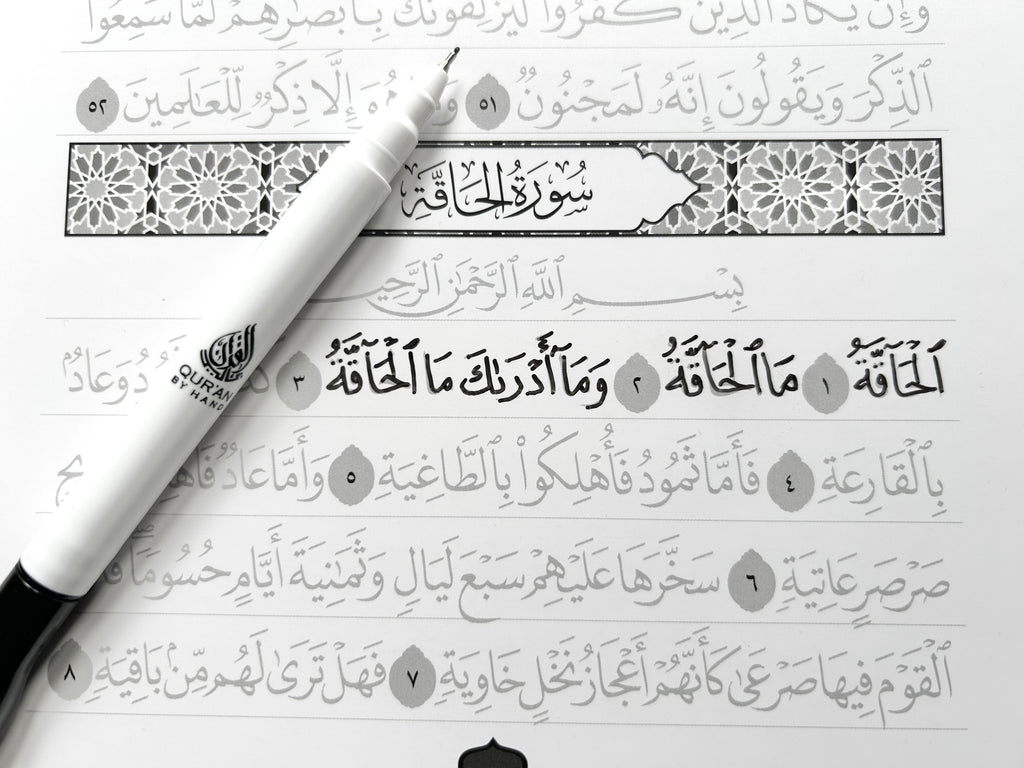 وَإِن يَكَادُ ٱلَّذِينَ كَفَرُوا۟ لَيُزْلِقُونَكَ بِأَبْصَٰرِهِمْ لَمَّا سَمِعُوا۟
ٱلذِّكْرَ وَيَقُولُونَ إِنَّهُۥ لَمَجْنُونٌ ٥١ هُوَ إِلَّا ذِكْرٌ لِّلْعَٰلَمِينَ ٥٢
سُورَةُ الحَاقَّةِ
بِسْمِ ٱللَّهِ ٱلرَّحْمَٰنِ
ٱلْحَآقَّةُ ١ مَا ٱلْحَآقَّةُ ٢ وَمَآ أَدْرَىٰكَ مَا ٱلْحَآقَّةُ ٣ وَعَادٌۢ
بِٱلْقَارِعَةِ ٤ فَأَمَّا ثَمُودُ فَأُهْلِكُوا۟ بِٱلطَّاغِيَةِ ٥ وَأَمَّا عَادٌ
صَرْصَرٍ عَاتِيَةٍ ٦ سَخَّرَهَا عَلَيْهِمْ سَبْعَ لَيَالٍ وَثَمَٰنِيَةَ أَيَّامٍ حُسُومًا
ٱلْقَوْمَ فِيهَا صَرْعَىٰ كَأَنَّهُمْ أَعْجَازُ نَخْلٍ خَاوِيَةٍ ٧ فَهَلْ تَرَىٰ لَهُم مِّنۢ بَاقِيَةٍ ٨
القرآن
QUR'AN
BY HAND